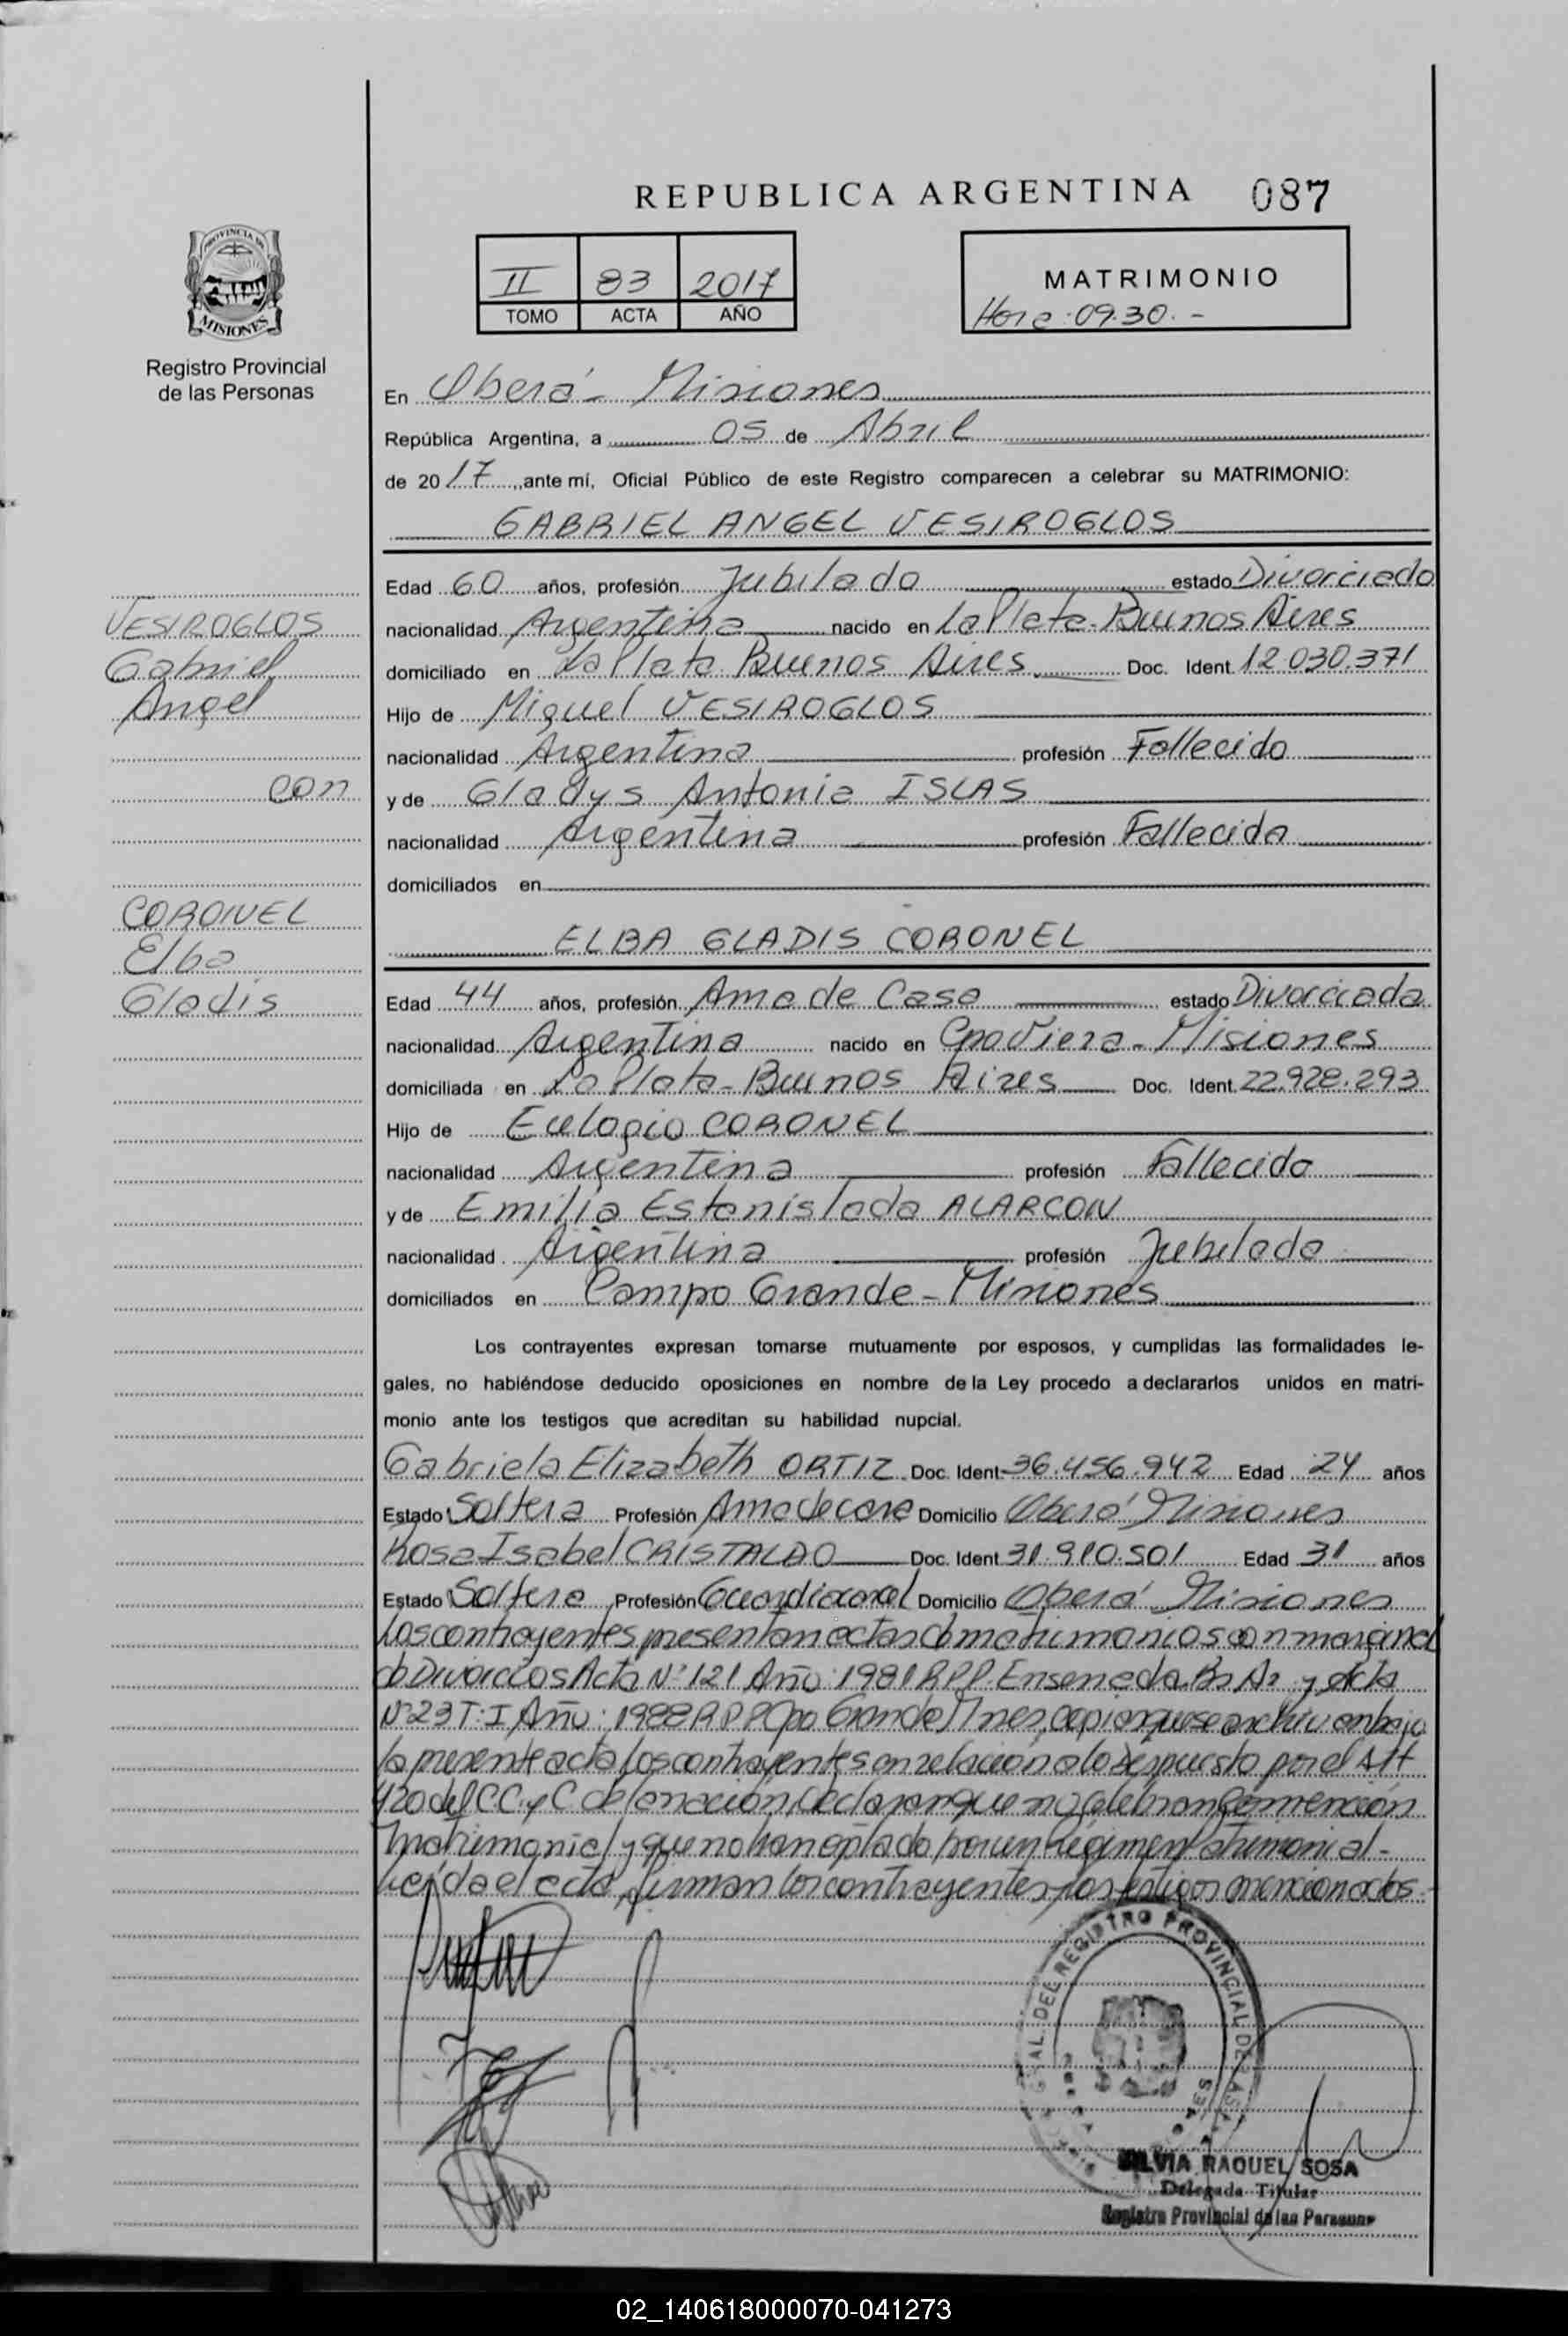 REPUBLICA ARGENTINA 087
PROVINCIA DE
MISIONES
Registro Provincial
de las Personas
II 83 2017
TOMO ACTA AÑO
MATRIMONIO
Hora: 09.30.-
En Oberá - Misiones
República Argentina, a 05 de Abril
de 2017, ante mí, Oficial Público de este Registro comparecen a celebrar su MATRIMONIO:
GABRIEL ANGEL VESIROGLOS
Edad 60 años, profesión Jubilado estado Divorciado
nacionalidad Argentina nacido en La Plata - Buenos Aires
domiciliado en La Plata Buenos Aires Doc. Ident. 12.030.371
Hijo de Miguel VESIROGLOS
nacionalidad Argentina profesión Fallecido
y de Gladys Antonia ISLAS
nacionalidad Argentina profesión Fallecida
domiciliados en
VESIROGLOS
Gabriel
Angel
con
CORONEL
Elba
Gladis
ELBA GLADIS CORONEL
Edad 44 años, profesión Ama de Casa estado Divorciada
nacionalidad Argentina nacido en Cpo Viera - Misiones
domiciliada en La Plata - Buenos Aires Doc. Ident. 22.928.293
Hijo de Eulogio CORONEL
nacionalidad Argentina profesión Fallecido
y de Emilia Estanislada ALARCON
nacionalidad Argentina profesión Jubilada
domiciliados en Campo Grande - Misiones
Los contrayentes expresan tomarse mutuamente por esposos, y cumplidas las formalidades le-
gales, no habiéndose deducido oposiciones en nombre de la Ley procedo a declararlos unidos en matri-
monio ante los testigos que acreditan su habilidad nupcial.
Gabriela Elizabeth ORTIZ Doc. Ident. 36.456.942 Edad 24 años
Estado Soltera Profesión Ama de casa Domicilio Oberá Misiones
Rosa Isabel CRISTALDO Doc. Ident 31.910.501 Edad 31 años
Estado Soltera Profesión Domicilio Oberá Misiones
Los contrayentes presentan actas de matrimonios con marginal
de Divorcios Acta Nº 121 Año: 1981 R.P.P. Ensenada Bs As y acta
Nº 23 T: I Año: 1988 R P P Cpo Grande Mnes, copias que se archivan bajo
la presente acta Los contrayentes en relacion a lo dispuesto por el Art
420 del C.C. y C de la nación, declaran que no celebran Convención
Matrimonial y que no han optado por un Régimen Patrimonial -
Leída el acta, firman los contrayentes y los testigos mencionados.-
DEL REGISTRO PROVINCIAL DE LAS
SILVIA RAQUEL SOSA
Delegada Titular
Registro Provincial de las Personas
02_140618000070-041273